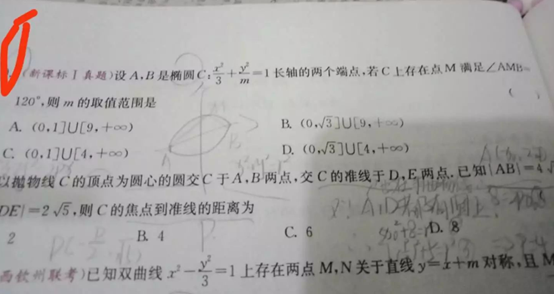 (新课标Ⅰ真题)设A,B是椭圆C:x²/3+y²/m=1长轴的两个端点,若C上存在点M满足∠AMB=
120°,则m的取值范围是 (
A. (0,1]∪[9,+∞) B. (0,√3]∪[9,+∞)
C. (0,1]∪[4,+∞) D. (0,√3]∪[4,+∞)
以抛物线C的顶点为圆心的圆交C于A,B两点,交C的准线于D,E两点.已知|AB|=4√
DE|=2√5,则C的焦点到准线的距离为
2 B. 4 C. 6 D. 8
西钦州联考)已知双曲线x²-y²/3=1上存在两点M,N关于直线y=x+m对称,且M